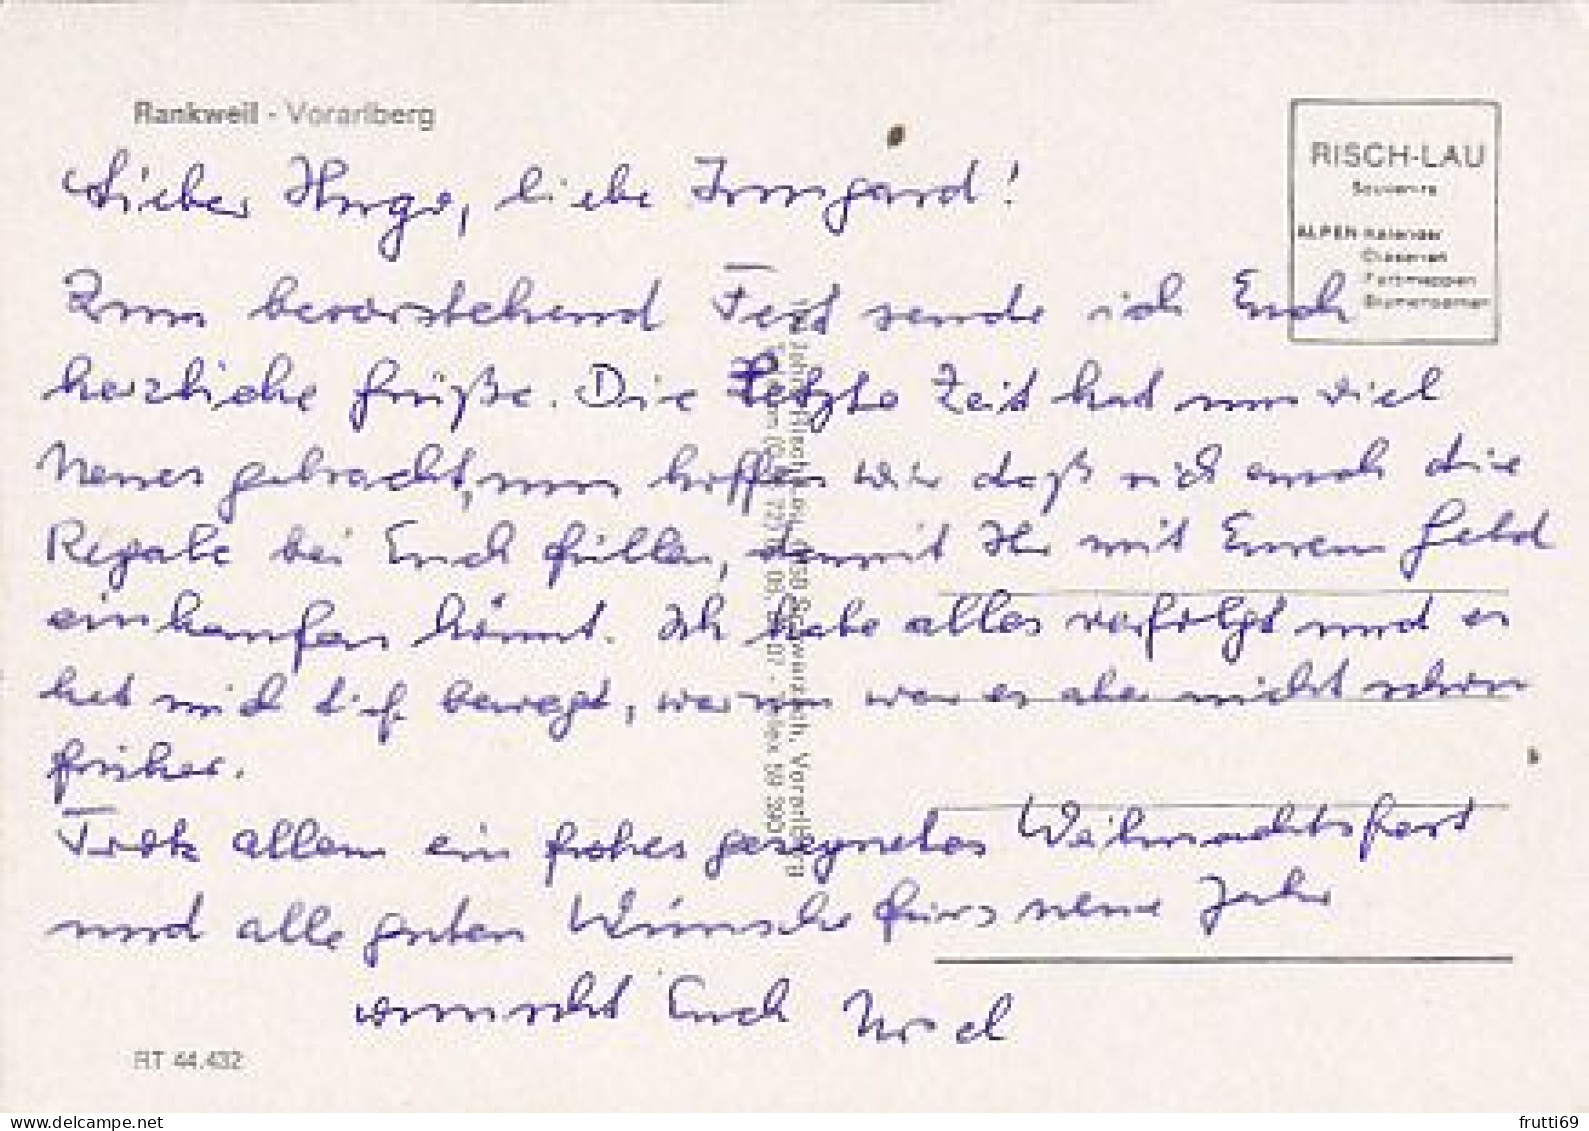 Rankweil - Vorarlberg
RISCH-LAU
Souvenirs
ALPEN-Kalender
Diaserien
Farbmappen
Blumenkarten
Lieber Hugo, liebe Irmgard!
Zum bevorstehend Fest sende ich Euch
herzliche Grüße. Die letzte Zeit hat nun viel
Neues gebracht, nun hoffen wir daß sich auch die
Regale bei Euch füllen, damit Ihr mit Eurem Geld
einkaufen könnt. Ich habe alles verfolgt und es
hat mich tief bewegt, warum war es aber nicht schon
früher.
Trotz allem ein frohes gesegnetes Weihnachtsfest
und alle guten Wünsche fürs neue Jahr
wünscht Euch
RT 44.432
www.delcampe.net
frutti69